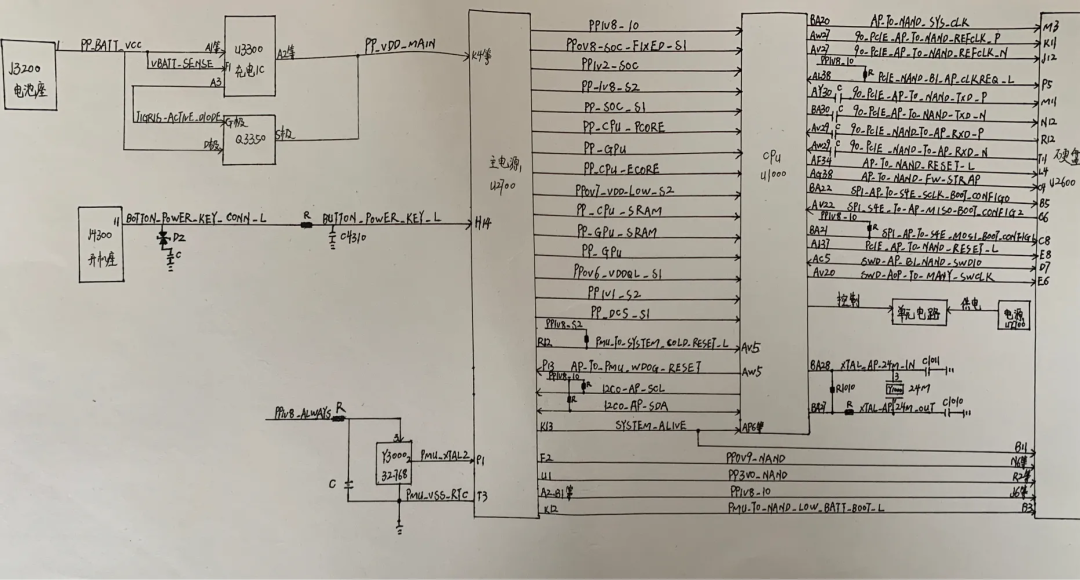 J3200
电池座
1
PP_BATT_VCC
VBATT-SENSE
A1等
F1
A3
U3300
充电IC
A2等
PP_VDD_MAIN
K4等
TIGRIS-ACTIVE_DIODE
G极
D极
Q3350
S极
J4300
开机座
11
BOTTON_POWER_KEY_CONN_L
DZ
C
R
BUTTON_POWER_KEY_L
C4310
H14
PP1V8_ALWAYS
R
C
3
Y3000
32.768
2
PMU_XTAL2
P1
PMU_VSS_RTC
T3
主电源
U2700
PP1V8-IO
PP0V8-SOC-FIXED-S1
PP1V2-SOC
PP-1V8-S2
PP-SOC-S1
PP-CPU-PCORE
PP-GPU
PP_CPU-ECORE
PP0V7-VDD-LOW-S2
PP-CPU-SRAM
PP-GPU-SRAM
PP-GPU
PP0V6_VDDQL_S1
PP1V1-S2
PP_DCS-S1
PP1V8-S2
R12
PMU-TO-SYSTEM_COLD_RESET_L
AV5
P13
AP-TO-PMU_WDOG-RESET
AW5
PP1V8-IO
R
I2C0-AP-SCL
R
I2C0-AP-SDA
K13
SYSTEM_ALIVE
AP6等
B11
E2
PP0V9-NAND
N6等
U1
PP3V0_NAND
R2等
A2-B1等
PP1V8-IO
J6等
K12
PMU-TO-NAND_LOW_BATT-BOOT_L
B3
CPU
U1000
BA20
AP-TO-NAND_SYS_CLK
M3
AW27
90-PCIE_AP-TO-NAND-REFCLK_P
K11
AV27
90-PCIE_AP-TO-NAND-REFCLK_N
J12
PP1V8-IO
R
AL38
PCIE-NAND-BI-AP_CLKREQ_L
P5
AY30
C
90-PCIE-AP-TO_NAND-TXD_P
M11
BA30
C
90-PCIE_AP-TO-NAND-TXD_N
N12
AV29
C
90-PCIE_NAND-TO-AP_RXD-P
R12
AW29
C
90-PCIE_NAND-TO-AP_RXD_N
T11
AF34
AP-TO-NAND-RESET-L
L4
AG38
AP-TO-NAND-FW-STRAP
BA22
SPI-AP-TO-S4E-SCLK-BOOT_CONFIG0
B5
AV22
SPI_S4E_TO-AP-MISO-BOOT_CONFIG2
C6
PP1V8-IO
R
BA21
SPI_AP-TO-S4E_MOSI_BOOT_CONFIG1
C8
A137
PCIE_AP_TO_NAND-RESET_L
E8
AC5
SWD-AP_BI_NAND-SWDIO
D7
AV20
SWD-AOP-TO-MANY_SWCLK
E6
硬盘
U2600
控制
单元电路
供电
电源
BA28
XTAL_AP_24M_IN
C1011
R1010
3
24M
BA27
R
XTAL-AP_24M_OUT
C1010